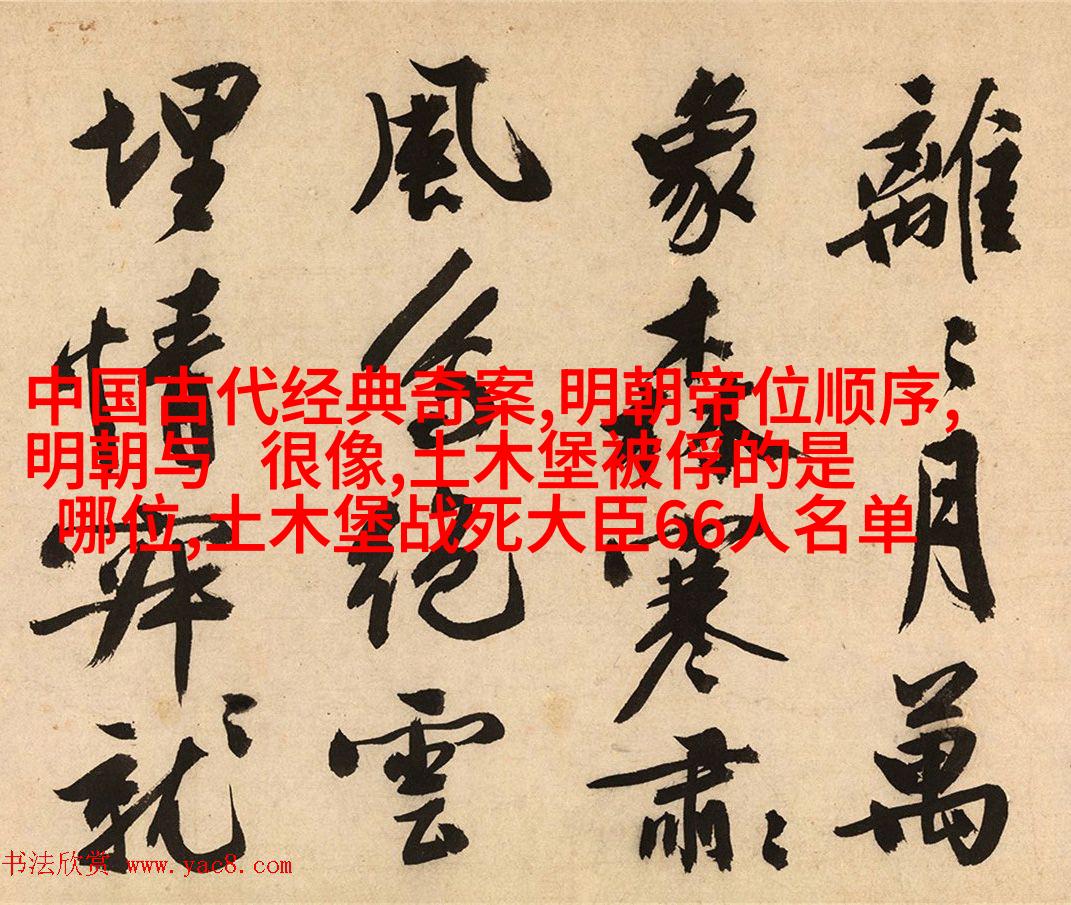 中国古代经典奇案,明朝帝位顺序,
明朝与 很像,土木堡被俘的是
哪位,土木堡战死大臣66人名单
離〻月萬
象森寒肅〻
風絶雲
埋情就〻
书法欣赏 www.yac8.com